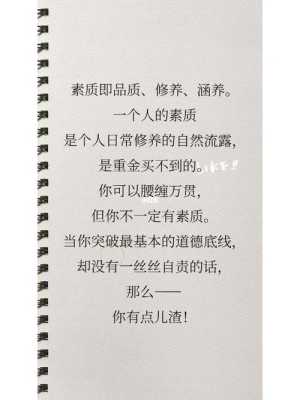 素质即品质、修养、涵养。
一个人的素质
是个人日常修养的自然流露,
是重金买不到的。
你可以腰缠万贯,
但你不一定有素质。
当你突破最基本的道德底线,
却没有一丝丝自责的话,
那么——
你有点儿渣!